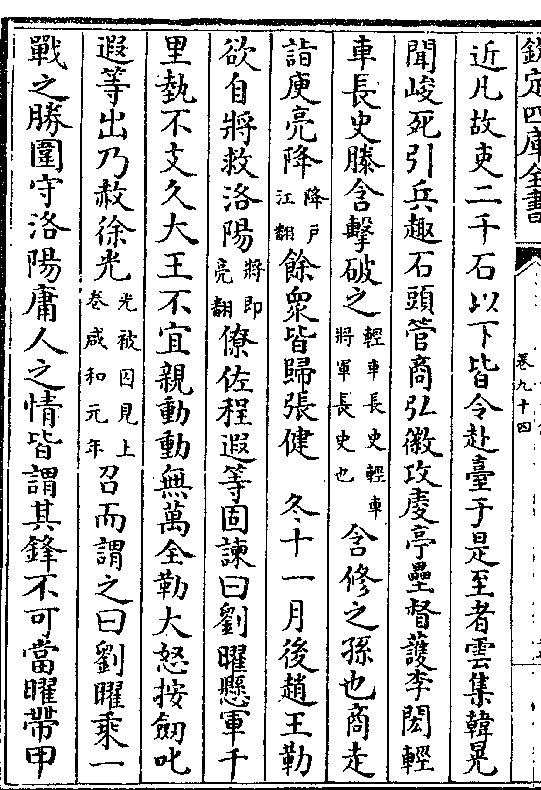 欽定四庫全書
卷九十四
近凡故吏二千石以下皆令赴臺于是至者雲集韓晃
聞峻死引兵趣石頭管商弘徽攻庱亭壘督護李閎輕
車長史滕含擊破之輕車長史輕車將軍長史也含修之孫也商走
詣庾亮降降戶江翻餘衆皆歸張健 冬十一月後趙王勒
欲自將救洛陽將即亮翻僚佐程遐等固諫曰劉曜懸軍千
里勢不支久大王不宜親動動無萬全勒大怒按劒叱
遐等出乃赦徐光光被囚見上卷咸和元年召而謂之曰劉曜乘一
戰之勝圍守洛陽庸人之情皆謂其鋒不可當曜帶甲